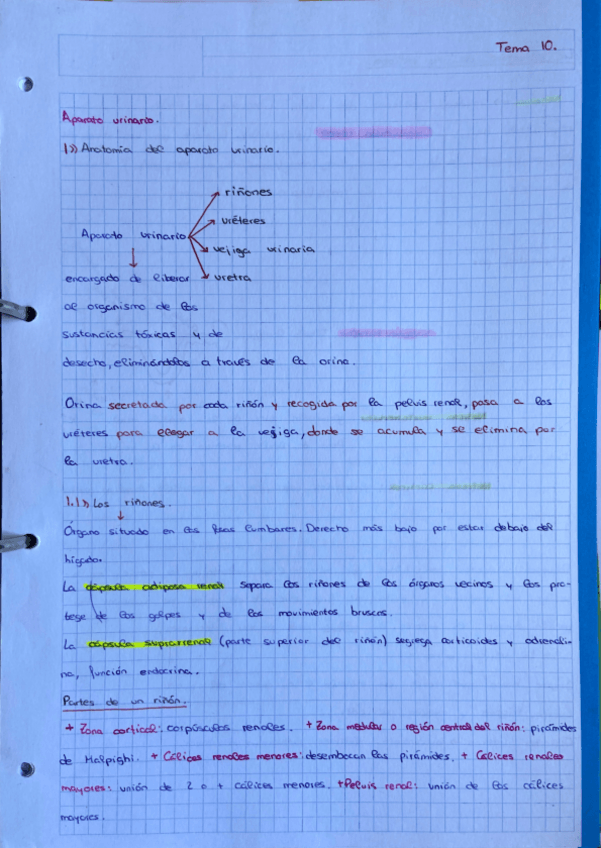 Tema 10.
Aparato urinario.
1)) Anatomía del aparato urinario.
riñones
uréteres
Aparato urinario
vejiga urinaria
encargado de liberar
uretra
al organismo de las
sustancias tóxicas y de
desecho, eliminándolas a través de la orina.
Orina secretada por cada riñón y recogida por la pelvis renal, pasa a los
uréteres para llegar a la vejiga, donde se acumula y se elimina por
la uretra.
1.1)) Los riñones.
Órgano situado en las fosas lumbares. Derecho más bajo por estar debajo del
hígado.
La cápsula adiposa renal separa los riñones de los órganos vecinos y los pro-
tege de los golpes y de los movimientos bruscos.
La cápsula suprarrenal (parte superior del riñón) segrega corticoides y adrenali-
na, función endocrina.
Partes de un riñón.
+ Zona cortical: corpúsculos renales. + Zona medular o región central del riñón: pirámides
de Malpighi. + Cálices renales menores: desembocan las pirámides. + Cálices renales
mayores: unión de 2 o + cálices menores. + Pelvis renal: unión de los cálices
mayores.